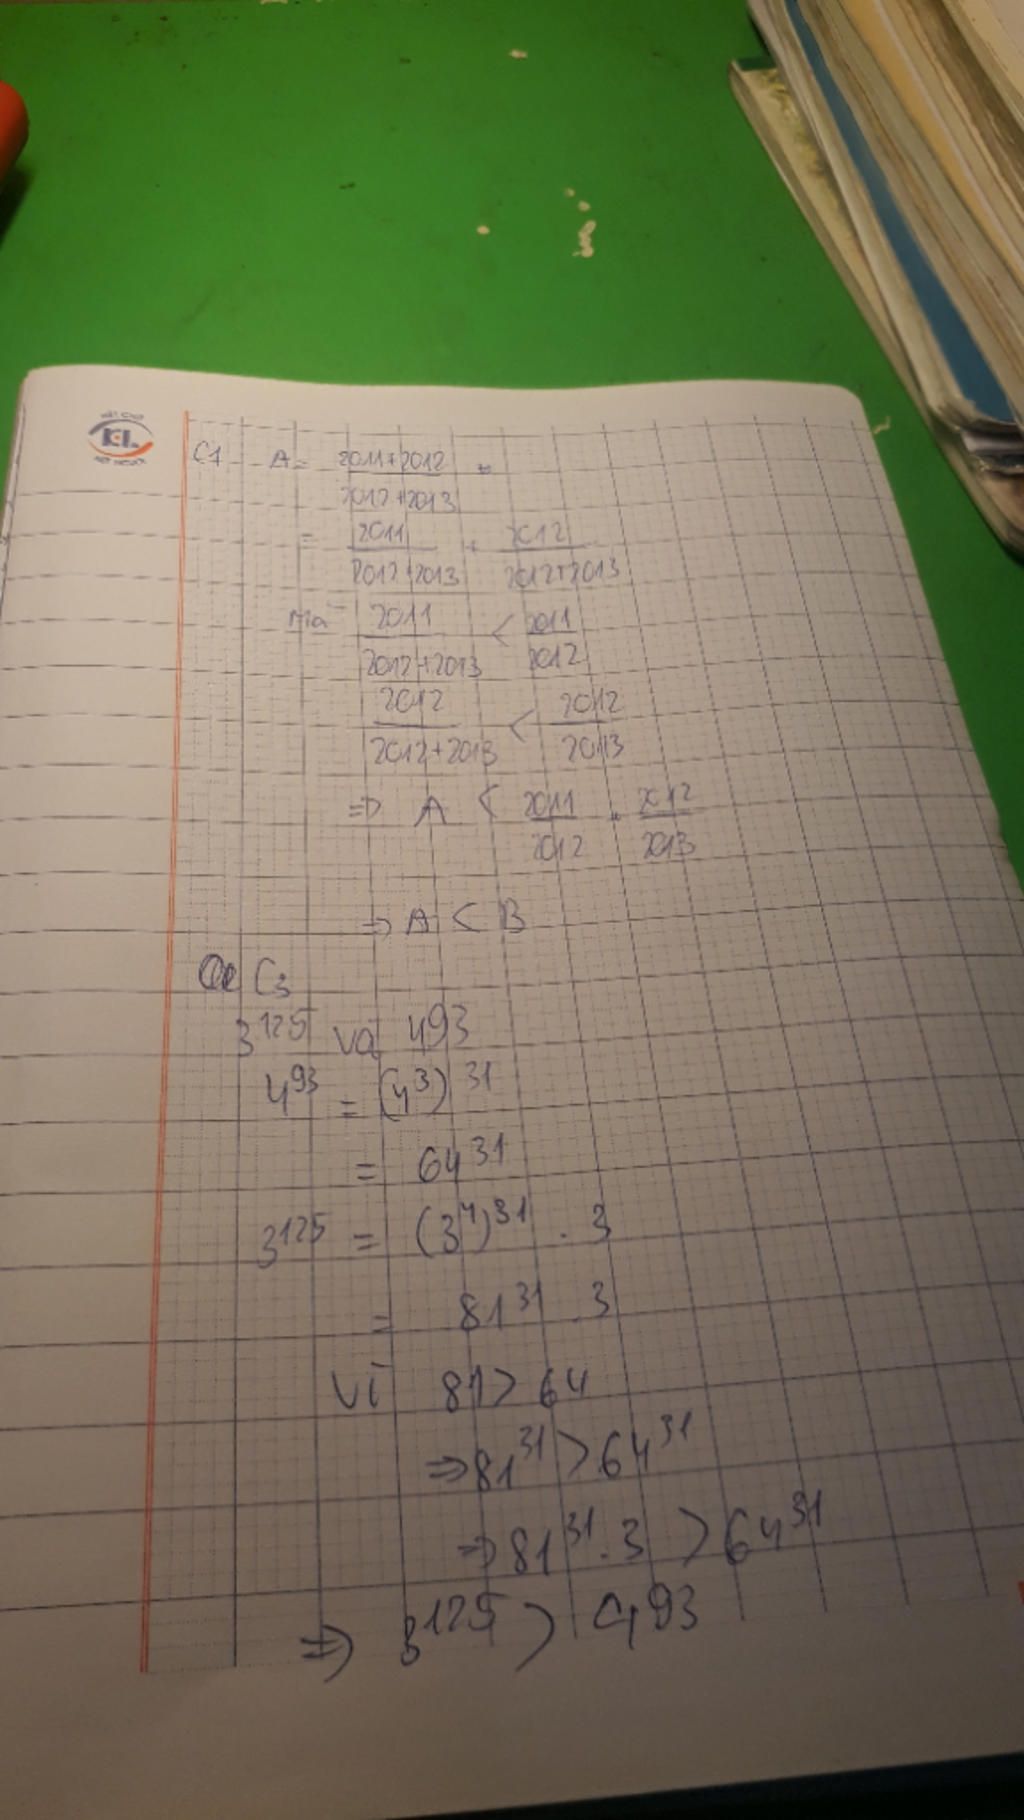 C1 A = 2011+2012 =
2012+2013
= 2011 + 2012
2012+2013 2012+2013
Mà 2011 < 2011
2012+2013 2012
2012 < 2012
2012+2013 2013
=> A < 2011 + 2012
2012 2013
=> A < B
C3
3^125 và 4^93
4^93 = (4^3)^31
= 64^31
3^125 = (3^4)^31 . 3
= 81^31 . 3
Vì 81 > 64
=> 81^31 > 64^31
=> 81^31 . 3 > 64^31
=> 3^125 > 4^93